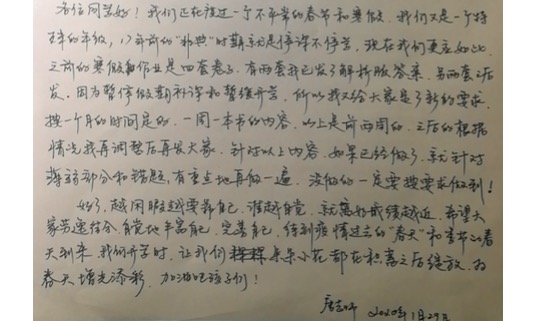 各位同学好！我们正在度过一个不平常的春节和寒假，我们又是一个特
殊的年级，17年前的"非典"时期就是停课不停学，现在我们更应如此
之前的寒假作业是四套卷子，有两套我已发了解析版答案，另两套之后
发，因为暂停假期补课和暂缓开学，所以我又给大家提了新的要求，
按一个月的时间定的，一周一本书的内容，以上是前两周的，之后的根据
情况我再调整后再发大家，针对以上内容，如果已经做了，就针对
薄弱部分和错题，有重点地再做一遍，没做的一定要按要求做到！
好了，越闲暇越要靠自己，谁越自觉，就离好成绩越近，希望大
家劳逸结合，自觉地丰富自己，完善自己，待到疫情过去的"春天"和季节的春
天到来，我们开学时，让我们朵朵小花都在积蓄之后绽放，为
春天增光添彩，加油吧孩子们！
2020年1月29日